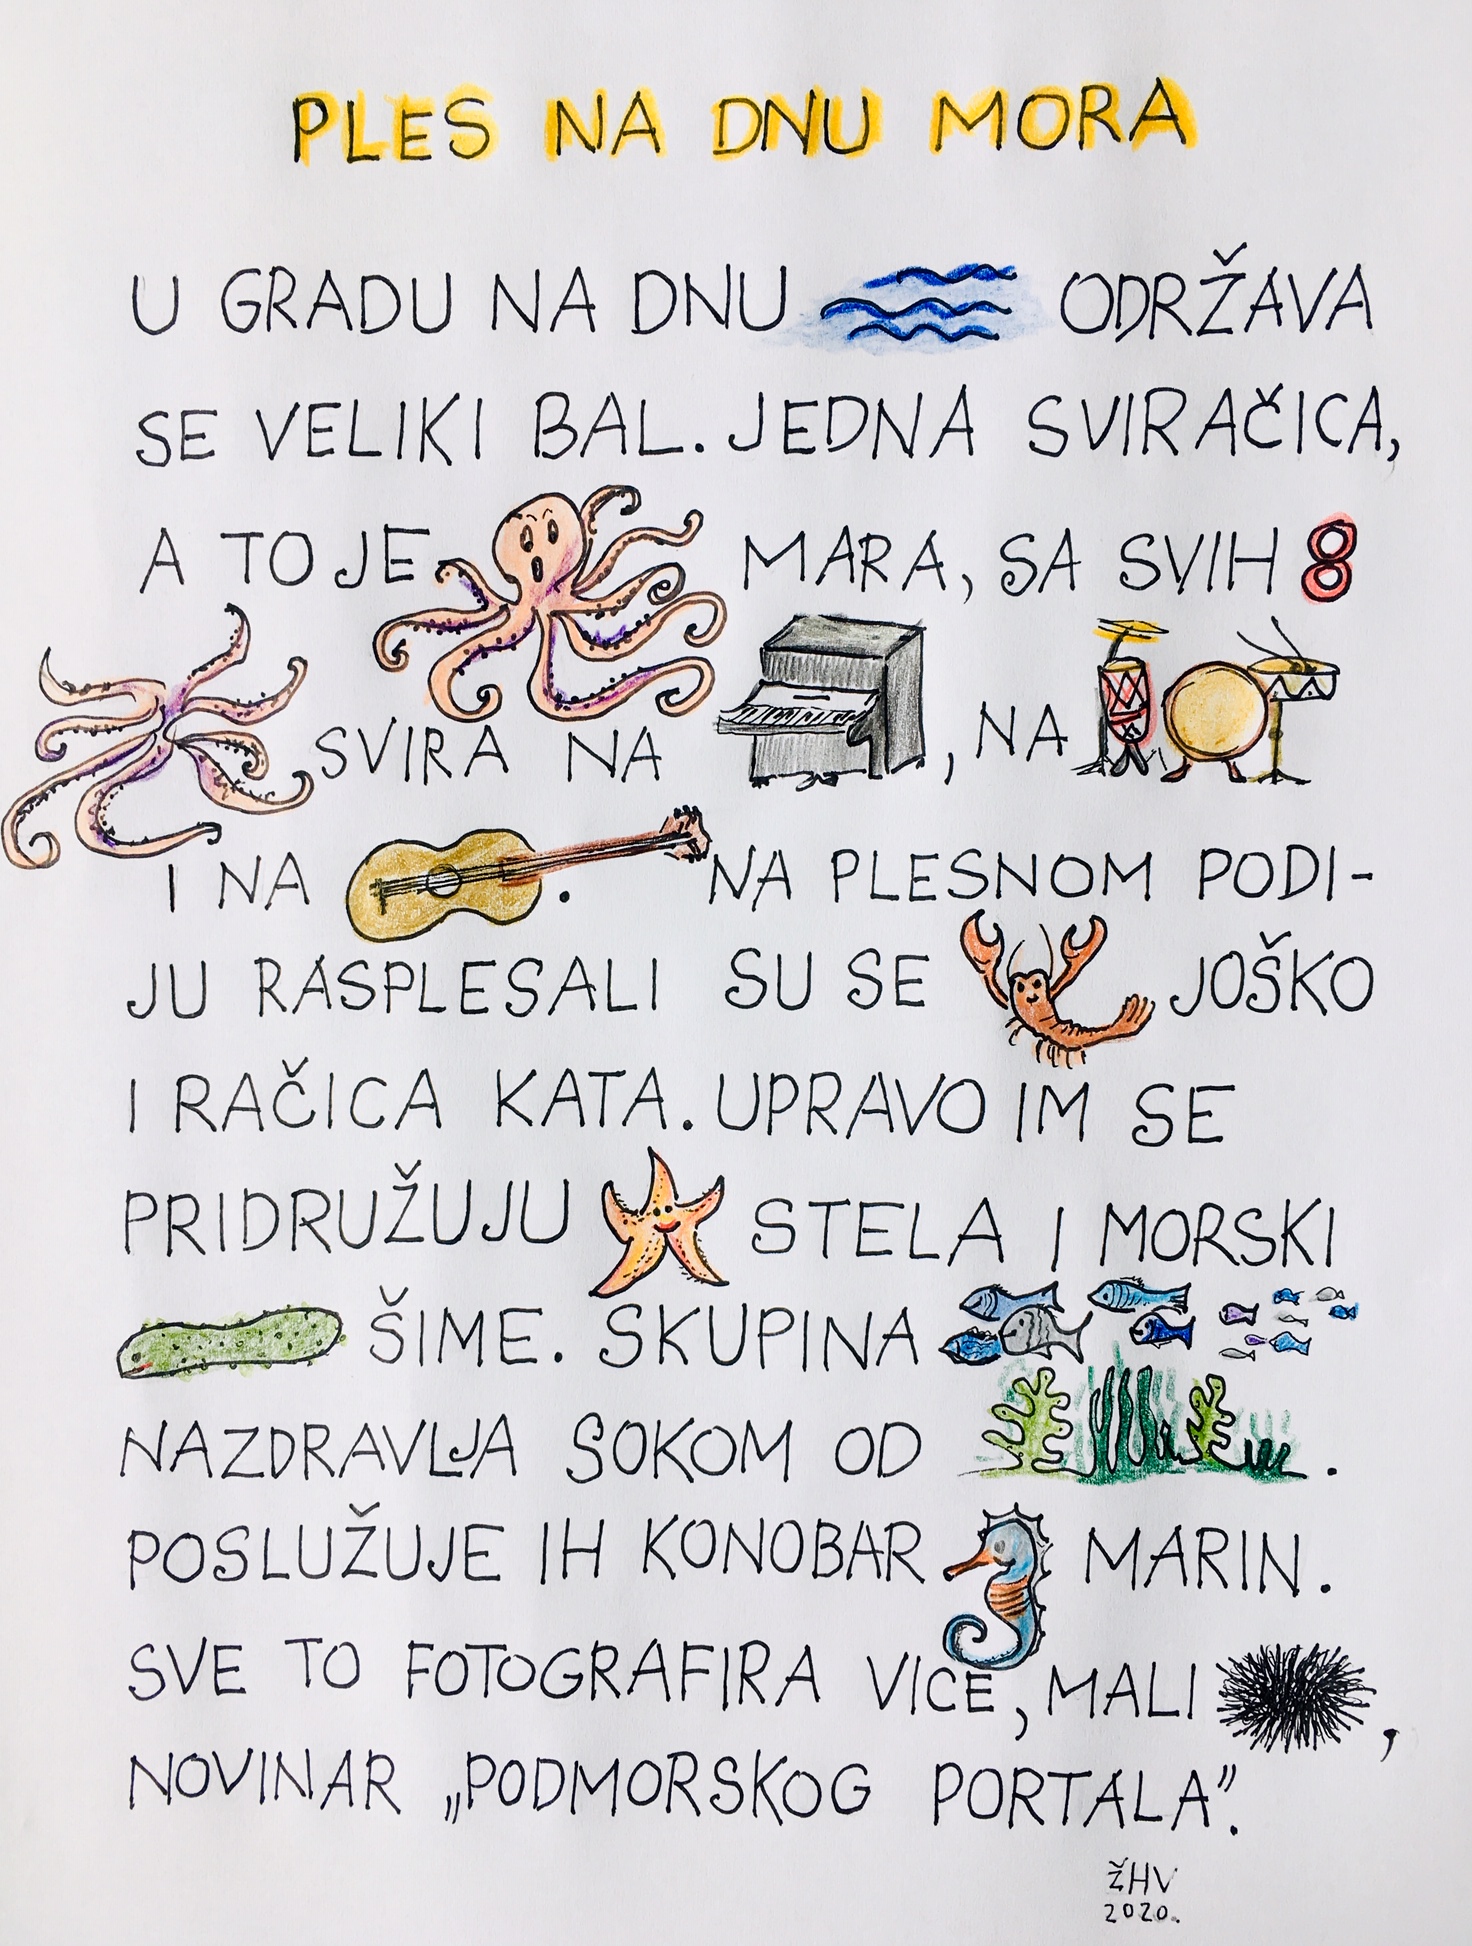 PLES NA DNU MORA
U GRADU NA DNU ODRŽAVA
SE VELIKI BAL. JEDNA SVIRAČICA,
A TO JE MARA, SA SVIH 8
SVIRA NA , NA
I NA . NA PLESNOM PODI-
JU RASPLESALI SU SE JOŠKO
I RAČICA KATA. UPRAVO IM SE
PRIDRUŽUJU STELA I MORSKI
ŠIME. SKUPINA
NAZDRAVLJA SOKOM OD .
POSLUŽUJE IH KONOBAR MARIN.
SVE TO FOTOGRAFIRA VICE, MALI ,
NOVINAR „PODMORSKOG PORTALA”.
ŽHV
2020.